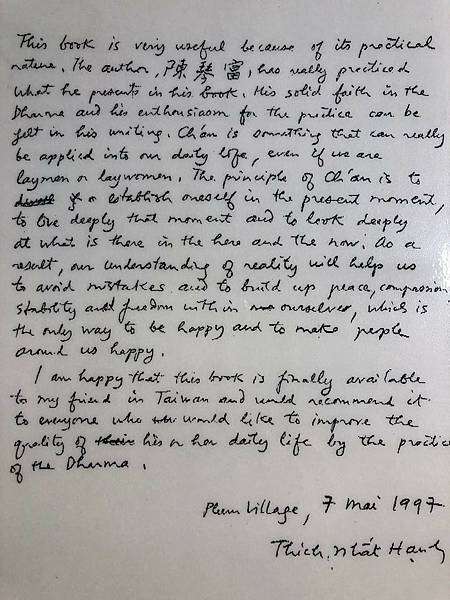 This book is very useful because of its practical
nature. The author, 陳琴富, has really practiced
what he presents in his book. His solid faith in the
Dharma and his enthousiasm for the practice can be
felt in his writing. Ch'an is something that can really
be applied into our daily life, even if we are
layman or laywomen. The principle of Ch'an is to
establish oneself in the present moment,
to live deeply that moment and to look deeply
at what is there in the here and the now. As a
result, our understanding of reality will help us
to avoid mistakes and to build up peace, compassion,
stability and freedom within ourselves, which is
the only way to be happy and to make people
around us happy.
I am happy that this book is finally available
to my friend in Taiwan and would recommend it
to everyone who would like to improve the
quality of his or her daily life by the practice
of the Dharma.
Plum Village, 7 Mai 1997
Thich Nhất Hạnh